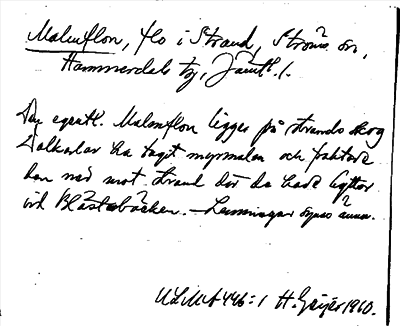 Malmflon, flo i Strand, Ströms sn,
Hammerdals tg, Jämtl.
Den egentl. Malmflon ligger på Strands skog
Dalkarlar ha tagt myrmalm och fraktade
den ned mot Strand där de hade hyttor
vid Blästabäcken. – Lämningar synes ännu.
ULMA 446:1 H. Geijer 1960.